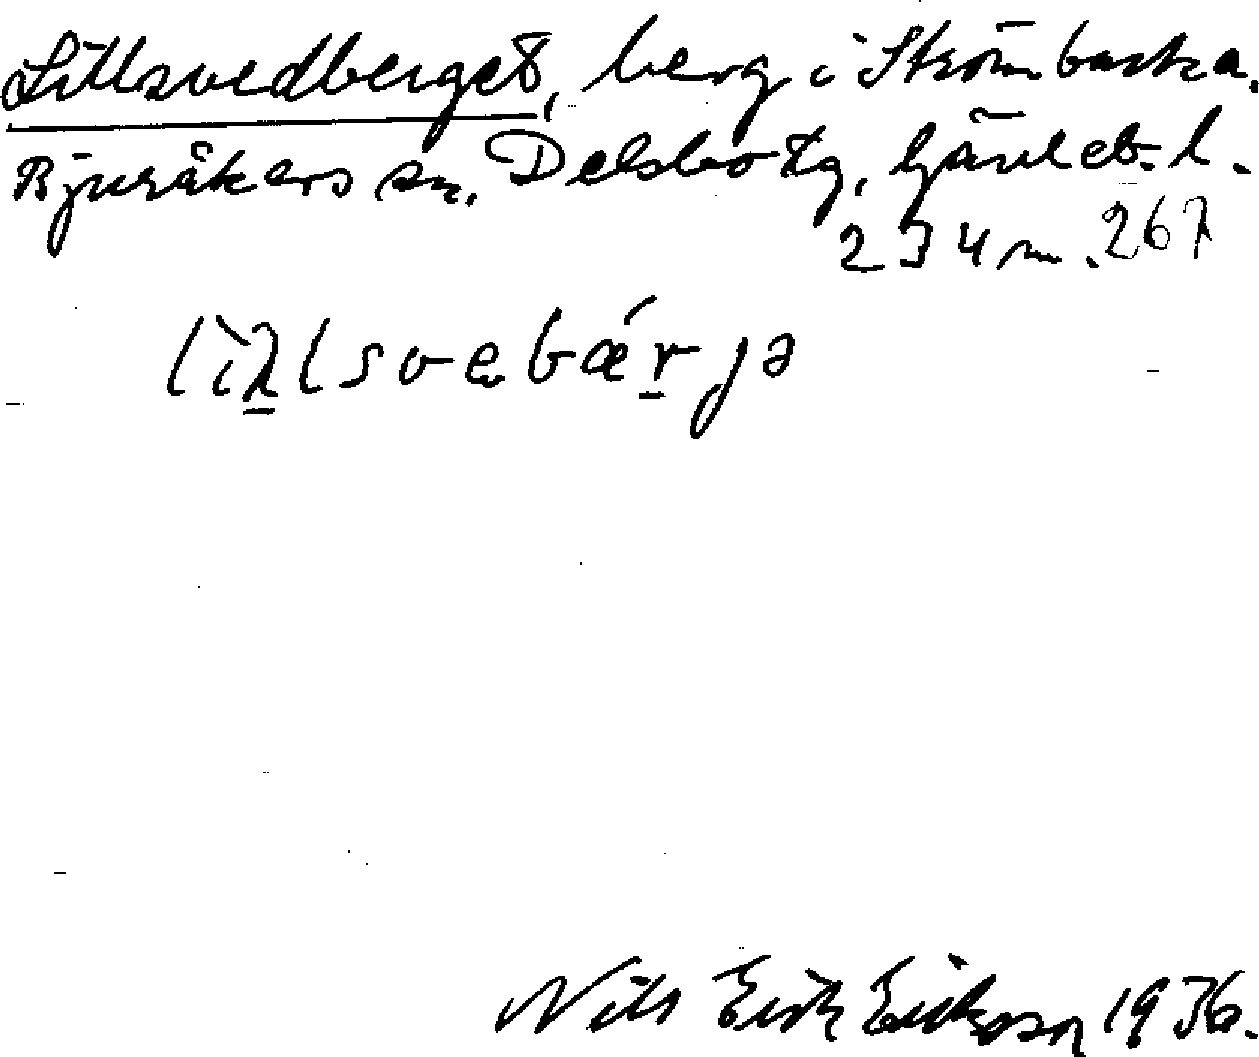 Lillsvedberget, berg i Strömbacka.
Bjuråkers sn. Delsbo tg, Gävleb. l.
234 m. 267
lìλlsvebǽrjə
Nils Erik Erikson 1936.